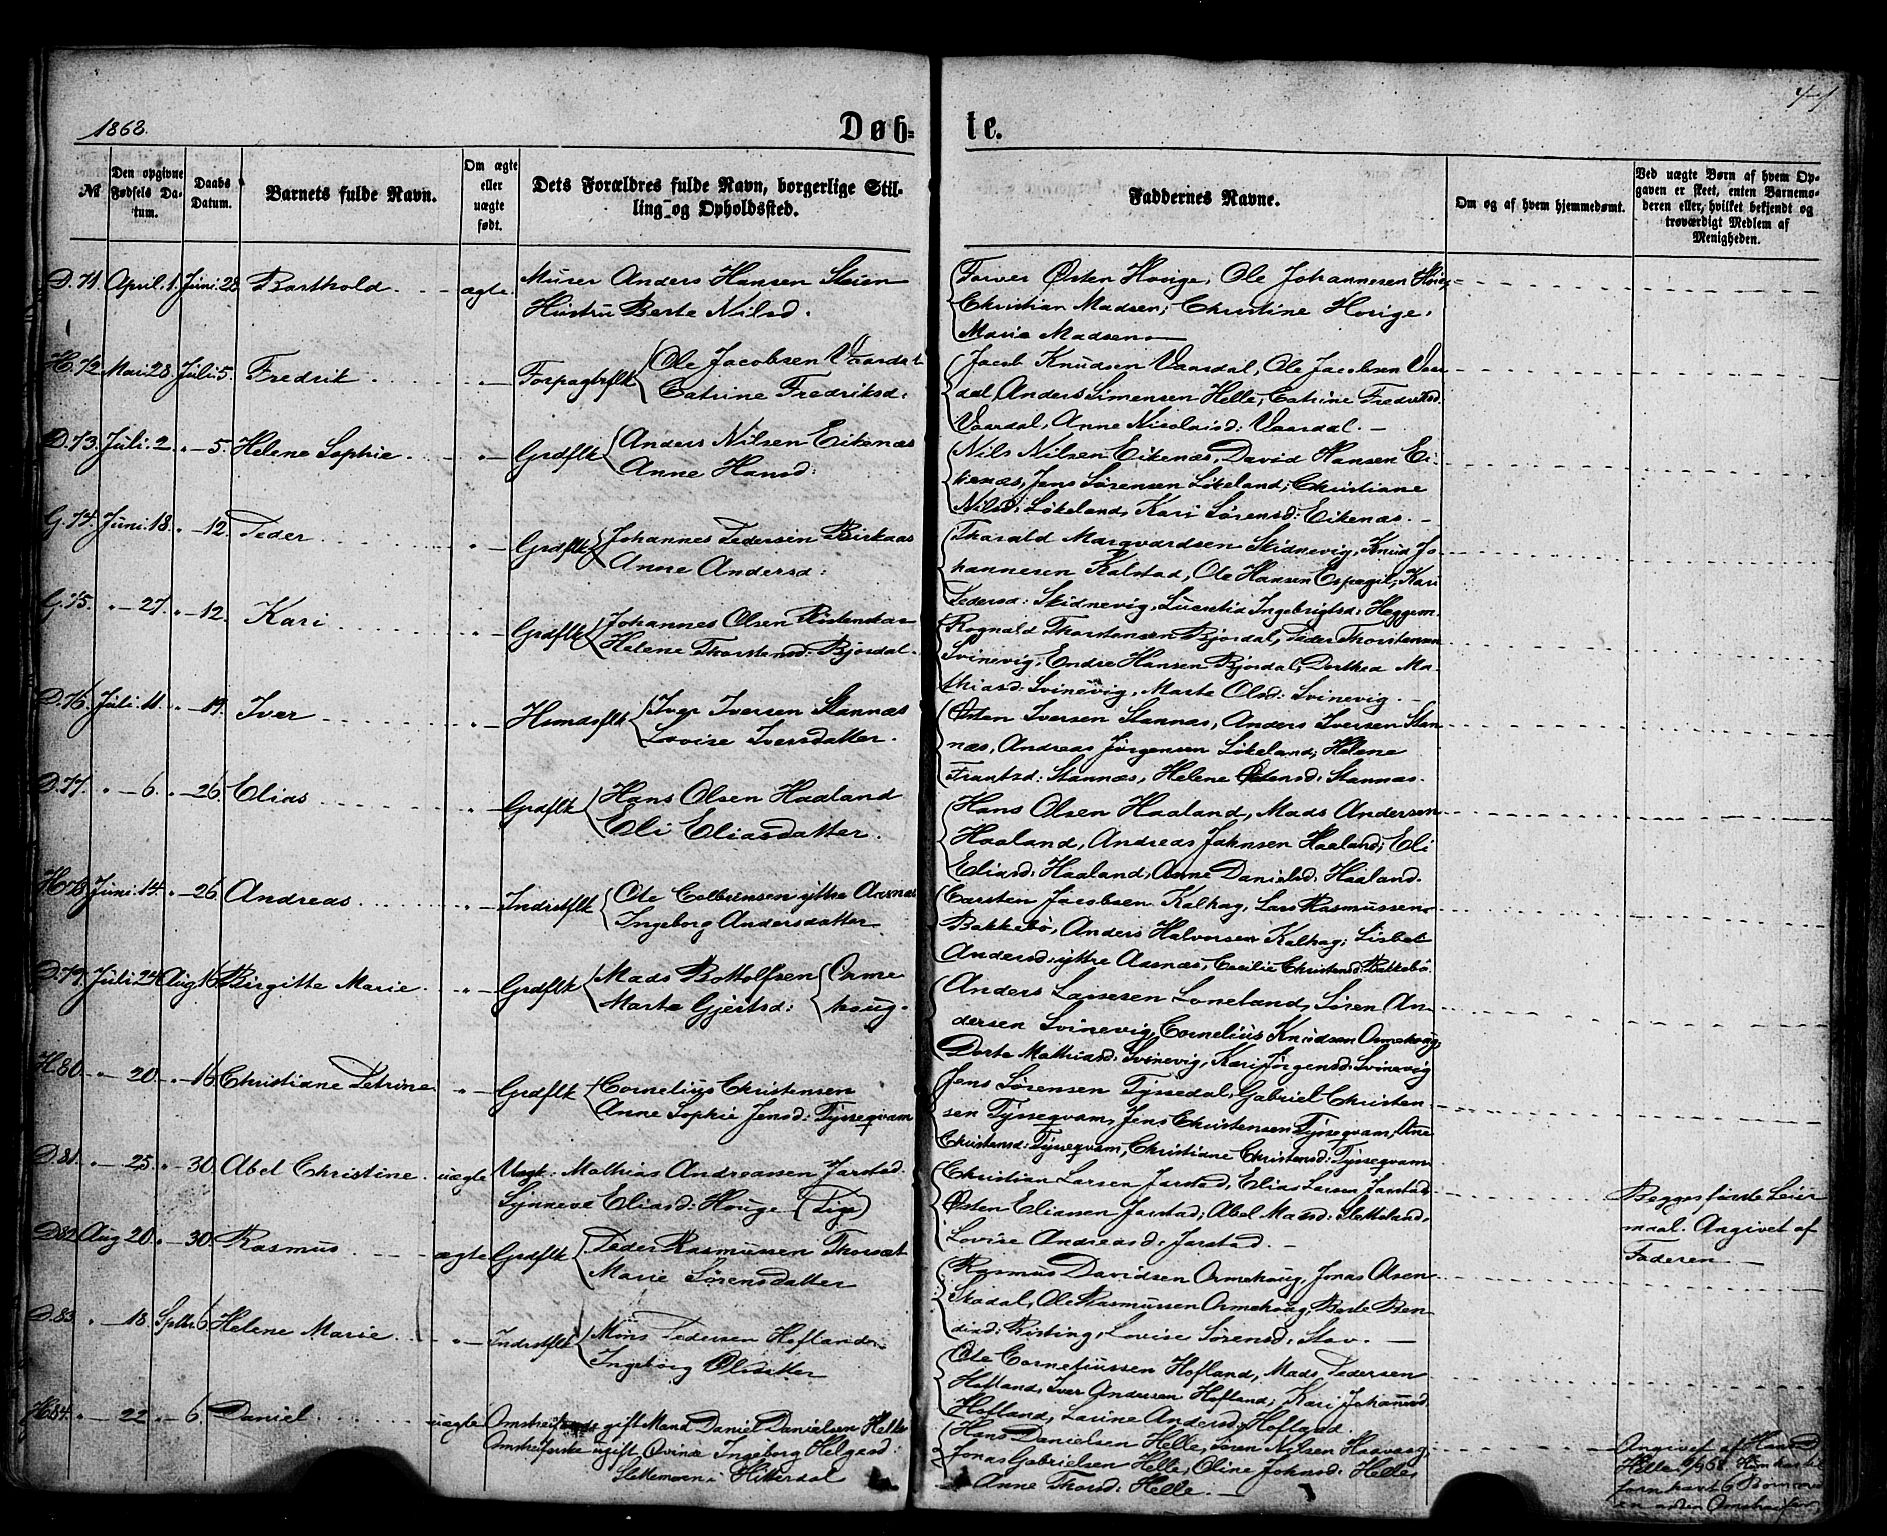 1868.
Døb=
te.
№
Den opgivne Fødsels Da-tum.
Daabs Datum.
Barnets fulde Navn.
Om ægte eller uægte født.
Dets Forældres fulde Navn, borgerlige Stil-
ling og Opholdssted.
Faddernes Navne.
Om og af hvem hjemmedøbt.
Ved uægte Børn af hvem Op-
gaven er skeet, enten Barnemo-
deren eller, hvilket bekjendt og
troværdigt Medlem af
Menigheden.
D. 71. April. 1. Juni. 28. Barthold. ægte. Murer Anders Hansen Steien
Hustru Berte Nilsd.
Farver Østen Horige, Ole Johannesen Horig
Christian Madsen, Christine Horige,
Marie Madsen
H. 72. Mai 28. Juli 5. Fredrik. "— Forpagtrflk Ole Jacobsen Vaardal
Catrine Fredriksd:
Jacob Knudsen Vaardal, Ole Jacobsen Vaar-
dal, Anders Simensen Helle, Catrine Fredriksd.
Vaardal, Anne Nicolaisd: Vaardal.
D. 73. Juli. 2. "— 5. Helene Sophie. "— Grdflk Anders Nilsen Eikenæs
Anne Hansd:
Nils Nilsen Eikenæs, David Hansen Ei-
kenæs, Jens Sørensen Løkeland, Christiane
Nilsd: Løkeland, Kari Sørensd: Eikenæs.
G. 74. Juni. 18. "— 12. Peder "— Grdflk Johannes Pedersen Birkaas
Anne Andersd:
Tharald Marqvardsen Skidnevig, Knud Jo-
hannesen Kalstad, Ole Hansen Espegil, Kari
Pedersd: Skidnevig, Lucretia Ingebrigtsd: Heggem.
G. 75. "— 27. "— 12. Kari "— Grdflk Johannes Olsen
Helene Thorstensd: Bjordal.
Rognald Thorstensen Bjordal, Peder Thorstensen
Svinevig, Endre Hansen Bjordal, Dorthea Ma-
thiasd: Svinevig, Marte Olsd: Svinevig.
D. 76. Juli. 11. "— 19. Iver "— Husmdsflk Iver Iversen Stannæs
Lovise Iversdatter.
Østen Iversen Stannæs, Anders Iversen Stan-
næs, Andreas Jørgensen Løkeland, Helene
Frantsd: Stannæs, Helene Østensd: Stannæs.
D. 77. "— 6. "— 26. Elias "— Grdflk Hans Olsen Haaland
Eli Eliasdatter.
Hans Olsen Haaland, Mads Andersen
Haaland, Andreas Johnsen Haaland, Eli
Eliasd: Haaland, Anne Danielsd: Haaland.
H. 78. Juni. 14. "— 26. Andreas "— Indrstflk Ole Colbensen yttre Aasnæs
Ingeborg Andersdatter
Carsten Jacobsen Kalhag, Lars Rasmussen
Bakkebø, Anders Halvorsen Kalhag, Lisbet
Andersd: yttre Aasnæs, Cecilie Christensd: Bakkebø.
D. 79. Juli 24. Aug 16. Birgitte Marie. "— Grdflk Mads Bottolfsen
Marte Gjertsd:
Orme
houg.
Anders Lassesen Loneland, Søren An-
dersen Svinevig, Cornelius Knudsen Ormehoug,
Dorte Mathiasd: Svinevig, Kari Jørgensd: Svinevig
H. 80. "— 20. "— 16. Christiane Petrine "— Grdflk Cornelius Christensen
Anne Sophie Jensd: Tysseqvam
Jens Sørensen Tyssedal, Gabriel Christen-
sen Tysseqvam, Jens Christensen Tysseqvam, Ane
Christensd: Tysseqvam, Christiane Christensd: Tysseqvam
D. 81. "— 25. "— 30. Abel Christine. uægte Ungk. Mathias Andreassen Jarstad.
Synneve Eliasd: Houge (Pige)
Christian Larsen Jarstad, Elias Larsen Jarstad
Østen Eliassen Jarstad, Abel Madsd: Sletteland,
Lovise Andreasd: Jarstad.
Begges første Leier
maal. Angivet af
Faderen
D. 82. Aug 20. "— 30. Rasmus ægte Grdflk Peder Rasmussen Thorsæt
Marie Sørensdatter
Rasmus Davidsen Ormehoug, Jonas Olsen
Skadal, Ole Rasmussen Ormehoug, Berte Ben-
diksd: Risting, Lovise Sørensd: Stav.
D. 83. "— 18. Septbr. 6. Helene Marie. "— Indrstflk Mons Pedersen Hofland
Ingeborg Olsdatter
Ole Corneliussen Hofland, Mads Pedersen
Hofland, Iver Andersen Hofland, Kari Johannesd
Hofland, Larine Andersd: Hofland
H. 84. "— 22. "— 6. Daniel. uægte Omstreifende gift Mand Daniel Danielsen Helle
Omstreiferske ugift Qvinde Ingeborg Helgesd:
Slettemoen i Hitterdal
Hans Danielsen Helle, Søren Nilsen Haavaag,
Jonas Gabrielsen Helle, Oline Johnsd: Helle,
Anne Thorsd: Helle.
Angivet af
Helle
en anden